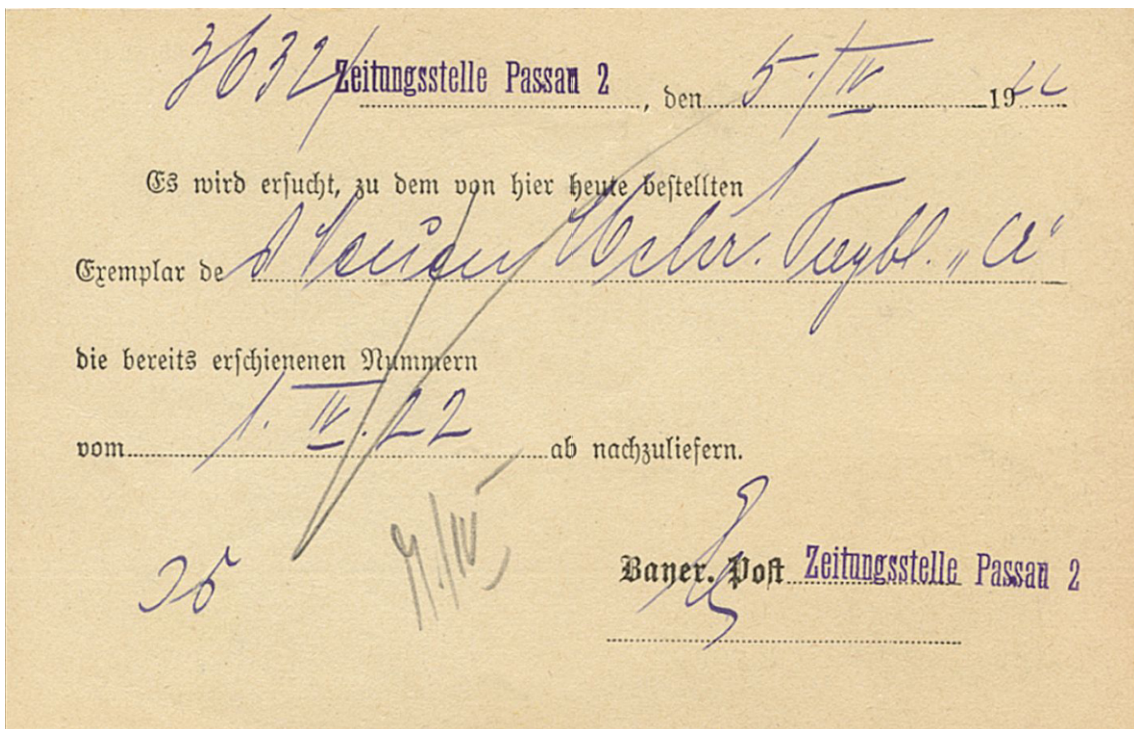 3632/ Zeitungsstelle Passau 2, den 5./IV 1922
Es wird ersucht, zu dem von hier heute bestellten 1
Exemplar de Tagbl. „A“
die bereits erschienenen Nummern
vom 1. IV. 22 ab nachzuliefern.
Bayer. Post Zeitungsstelle Passau 2